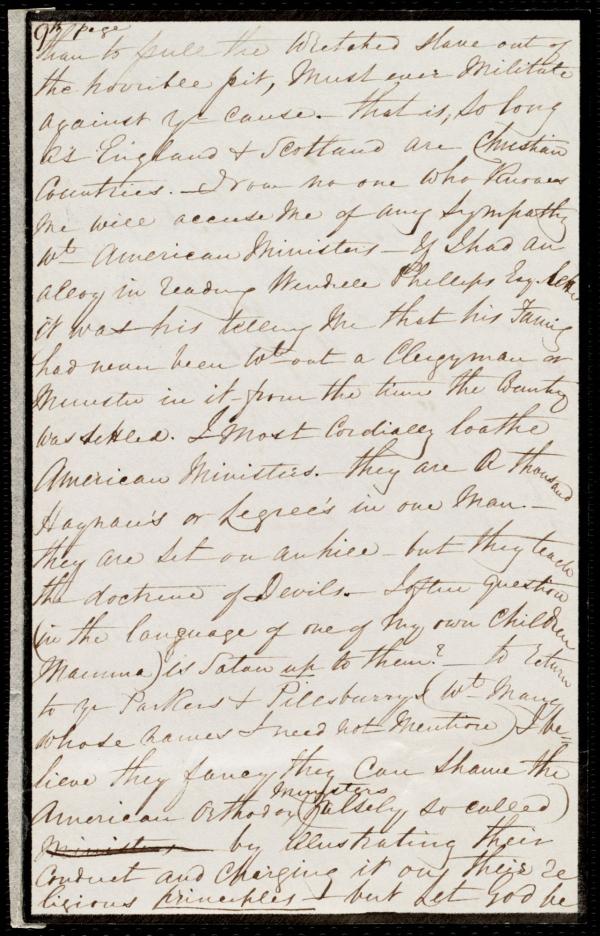 9th page
than to pull the Wretched slave out of
the horrible pit, Must ever Militate
against yr cause. - that is, so long
as England & Scotland are Christian
Countries. - I vow no one who Knows
Me will accuse Me of any Sympathy
wt American Ministers - If I had an
alloy in reading Wendell Phillips Esq. letter
it was his telling Me that his Family
had never been wt out a Clergyman or
Minister in it - from the time the Country
was settled. I Most Cordially loathe
American Ministers. - they are A thousand
Haynau's or Legree's in one Man. -
they are set on an hill - but they teach
the doctrine of Devils. - I often question
(in the language of one of My own Children
Mamma) is Satan up to them? - to return
to yr Parkers & Pillsburrys (wt Many
whose names I need not Mention) I be=
lieve they fancy they Can Shame the
American Orthodox (falsely so called) Ministers
Ministers by illustrating their
Conduct and Charging it on their re
ligious principles - but let God be